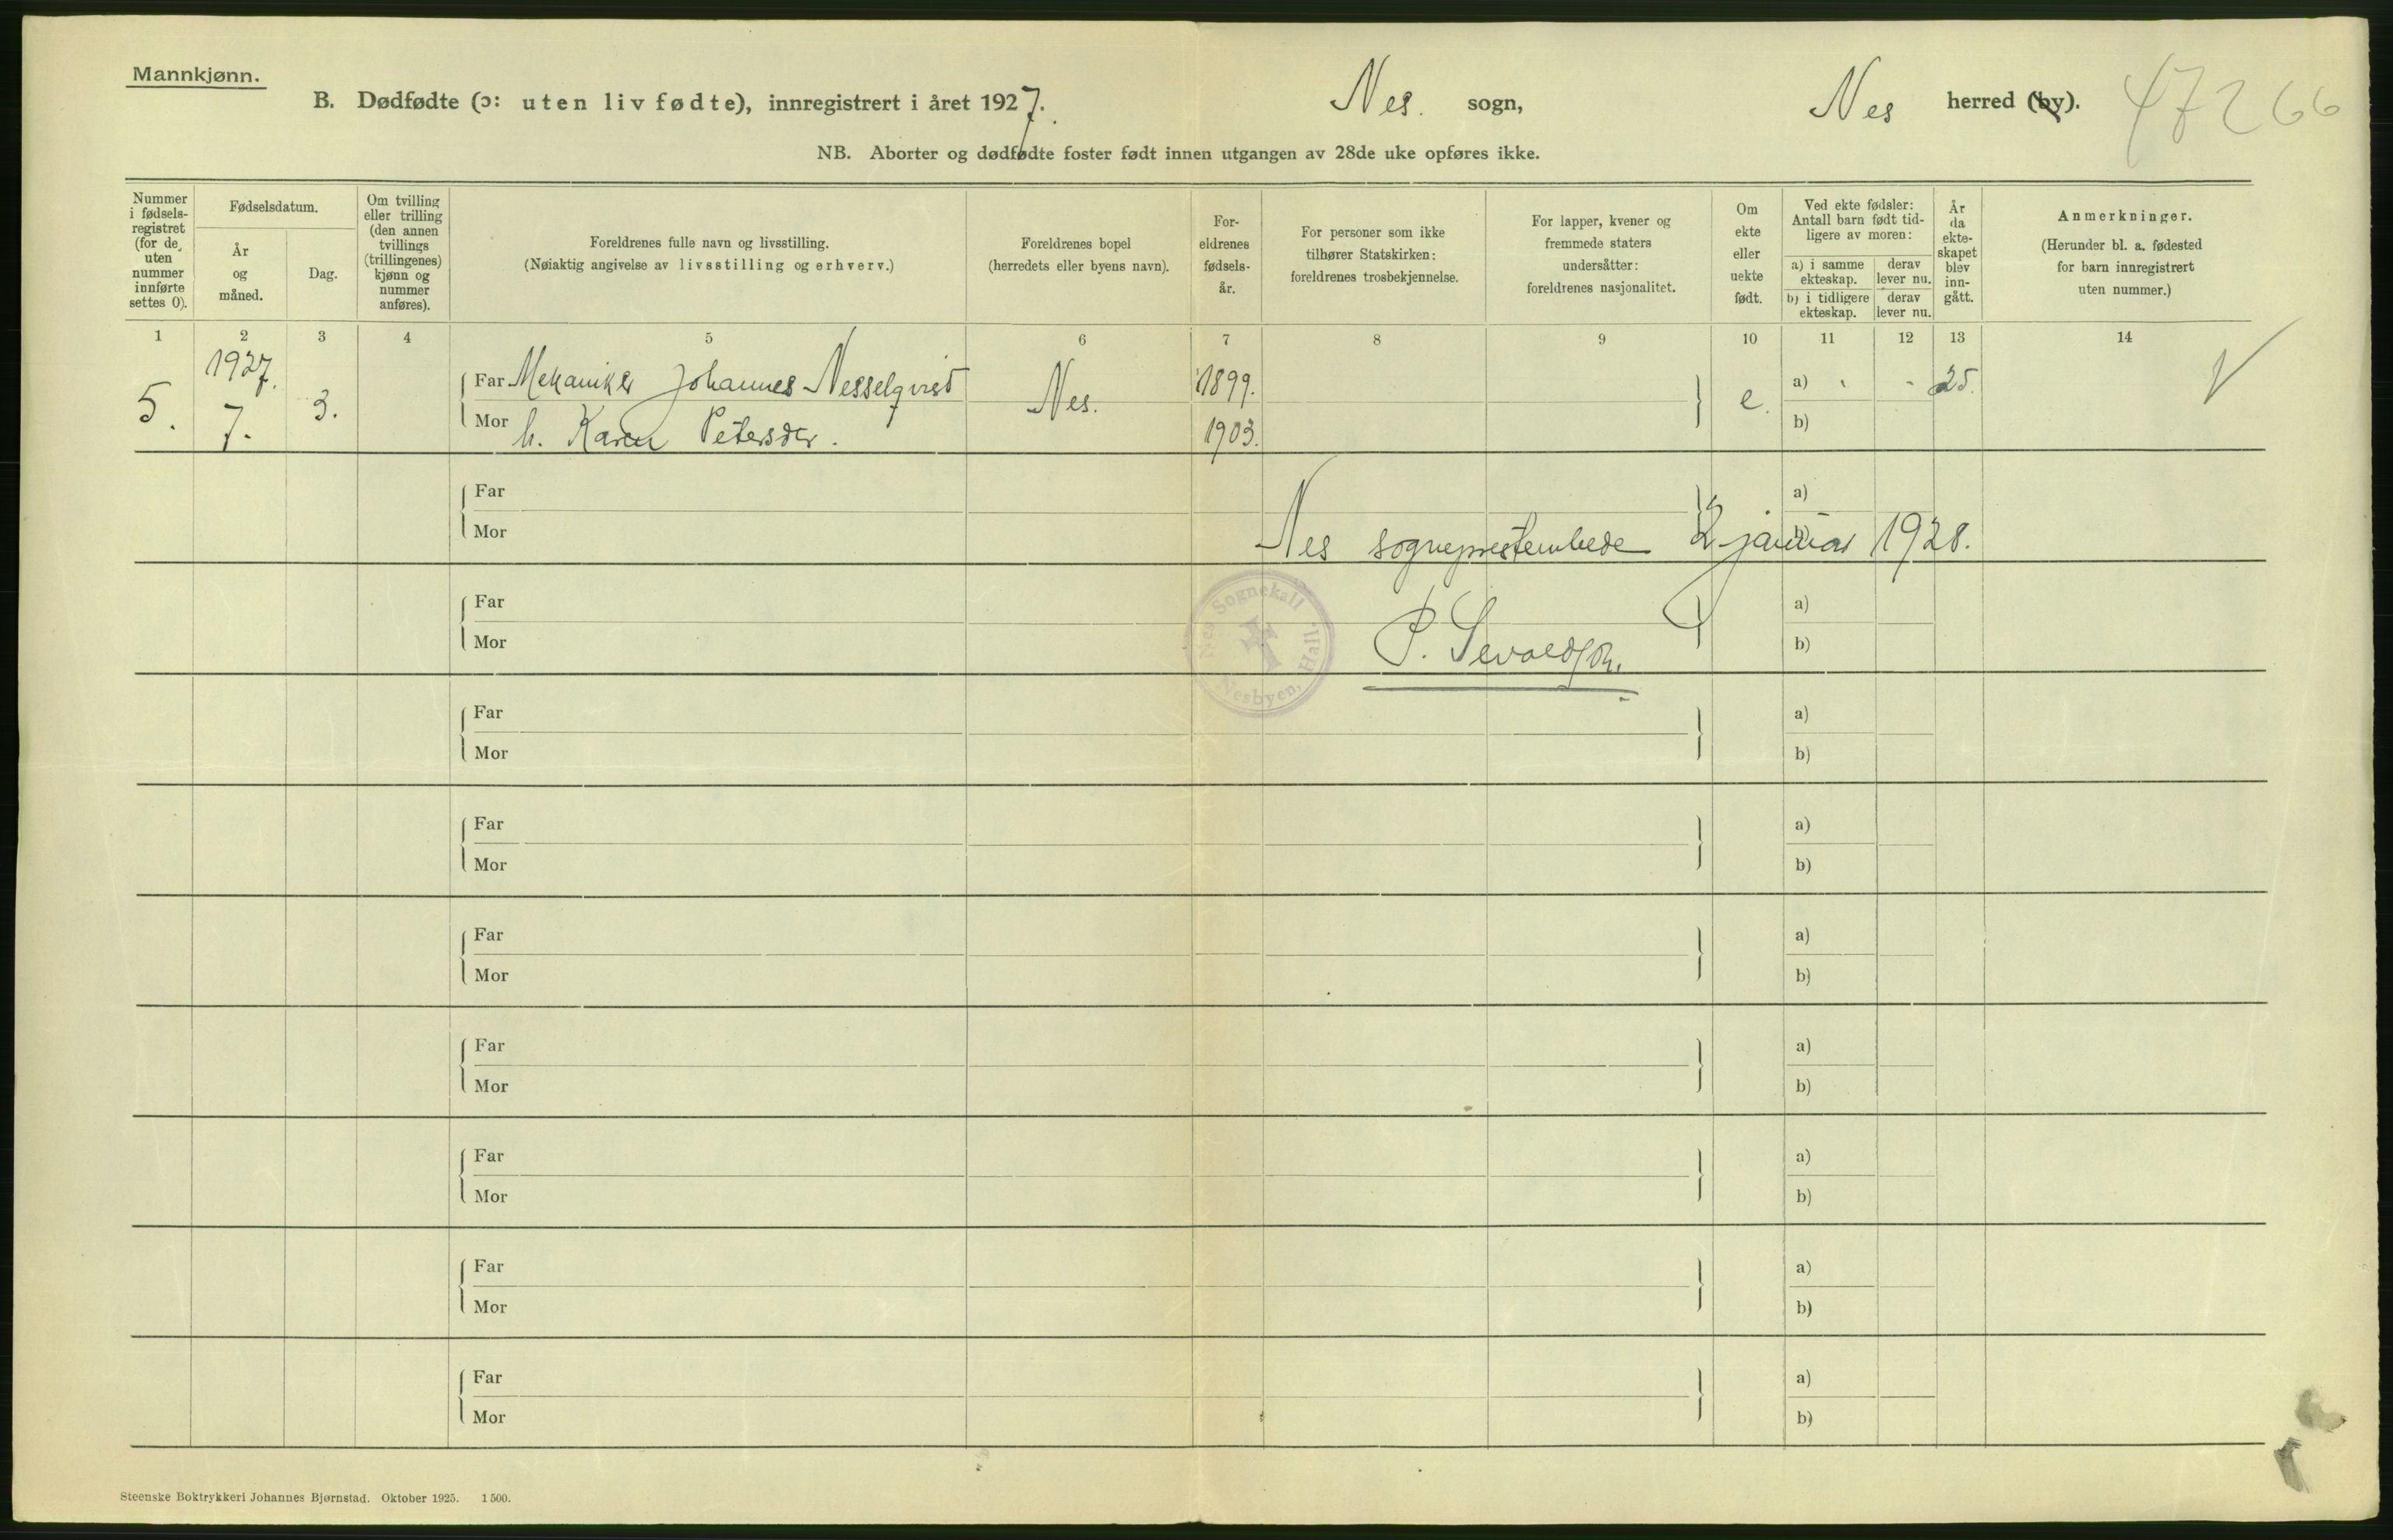 Mannkjønn.
B. Dødfødte (ɔ: uten liv fødte), innregistrert i året 1927. Nes. sogn, Nes herred (by). 47266
NB. Aborter og dødfødte foster født innen utgangen av 28de uke opføres ikke.
Nummer i fødsels- registret (for de uten nummer innførte settes 0).
Fødselsdatum.
År og måned.
Dag.
Om tvilling eller trilling (den annen tvillings (trillingenes) kjønn og nummer anføres).
Foreldrenes fulle navn og livsstilling.
(Nøiaktig angivelse av livsstilling og erhverv.)
Foreldrenes bopel
(herredets eller byens navn).
For- eldrenes fødsels- år.
For personer som ikke tilhører Statskirken: foreldrenes trosbekjennelse.
For lapper, kvener og fremmede staters undersåtter: foreldrenes nasjonalitet.
Om ekte eller uekte født.
Ved ekte fødsler: Antall barn født tid- ligere av moren:
a) i samme ekteskap. derav lever nu.
b) i tidligere ekteskap. derav lever nu.
År da ekte- skapet blev inn- gått.
Anmerkninger.
(Herunder bl. a. fødested for barn innregistrert uten nummer.)
1 2 3 4 5 6 7 8 9 10 11 12 13 14
5. 1927. 7. 3.
Far Mekaniker Johannes Nesselqvist Nes. 1899. e. a) - 25.
Mor h. Karen Petersdtr. 1903. b)
Far a)
Mor b)
Nes sogneprestembede 2 januar 1928.
Nes Sognekall
Nesbyen, Hall.
P. Sevaldson.
Far a)
Mor b)
Far a)
Mor b)
Far a)
Mor b)
Far a)
Mor b)
Far a)
Mor b)
Far a)
Mor b)
Far a)
Mor b)
Far a)
Mor b)
Steenske Boktrykkeri Johannes Bjørnstad. Oktober 1925. 1 500.